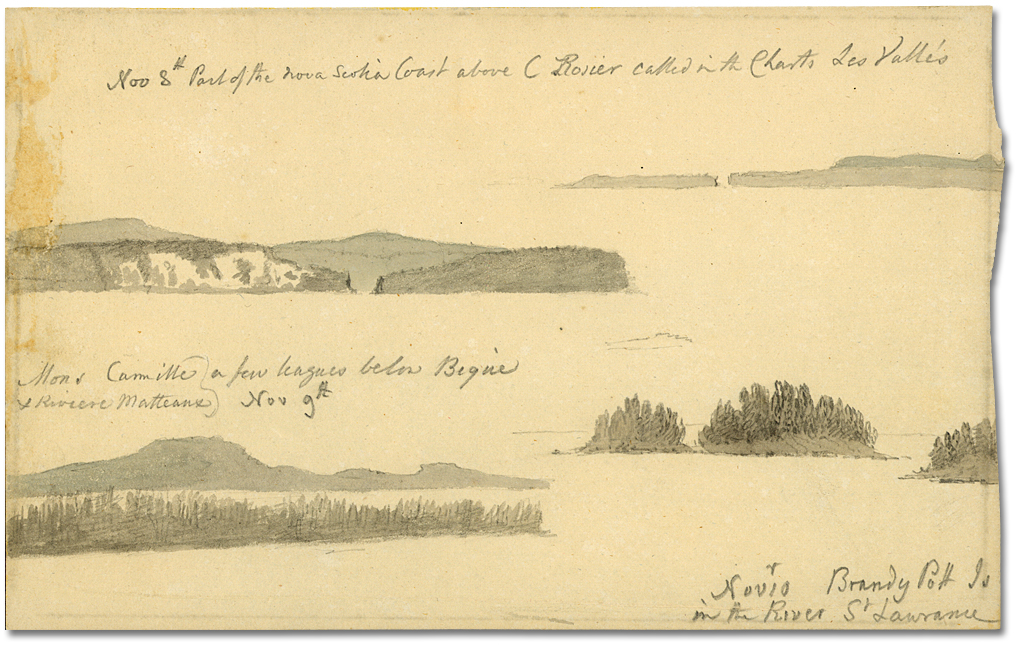 Nov 8th Part of the Nova Scotia Coast above C Rosier called in th Charts Les Vallés
Mons Camille a few leagues below Beqüe
& Riviere Matteaux Nov 9th
Novr 10 Brandy Pott Is
in the River St Lawrance